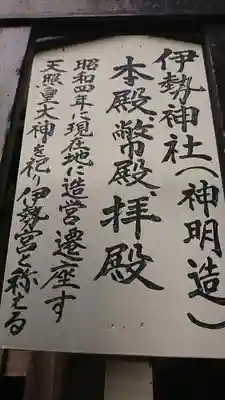 伊勢神社(神明造)
本殿、幣殿、拝殿
昭和四年に現在地に造営遷座す
天照皇大神を祀り伊勢宮と称える